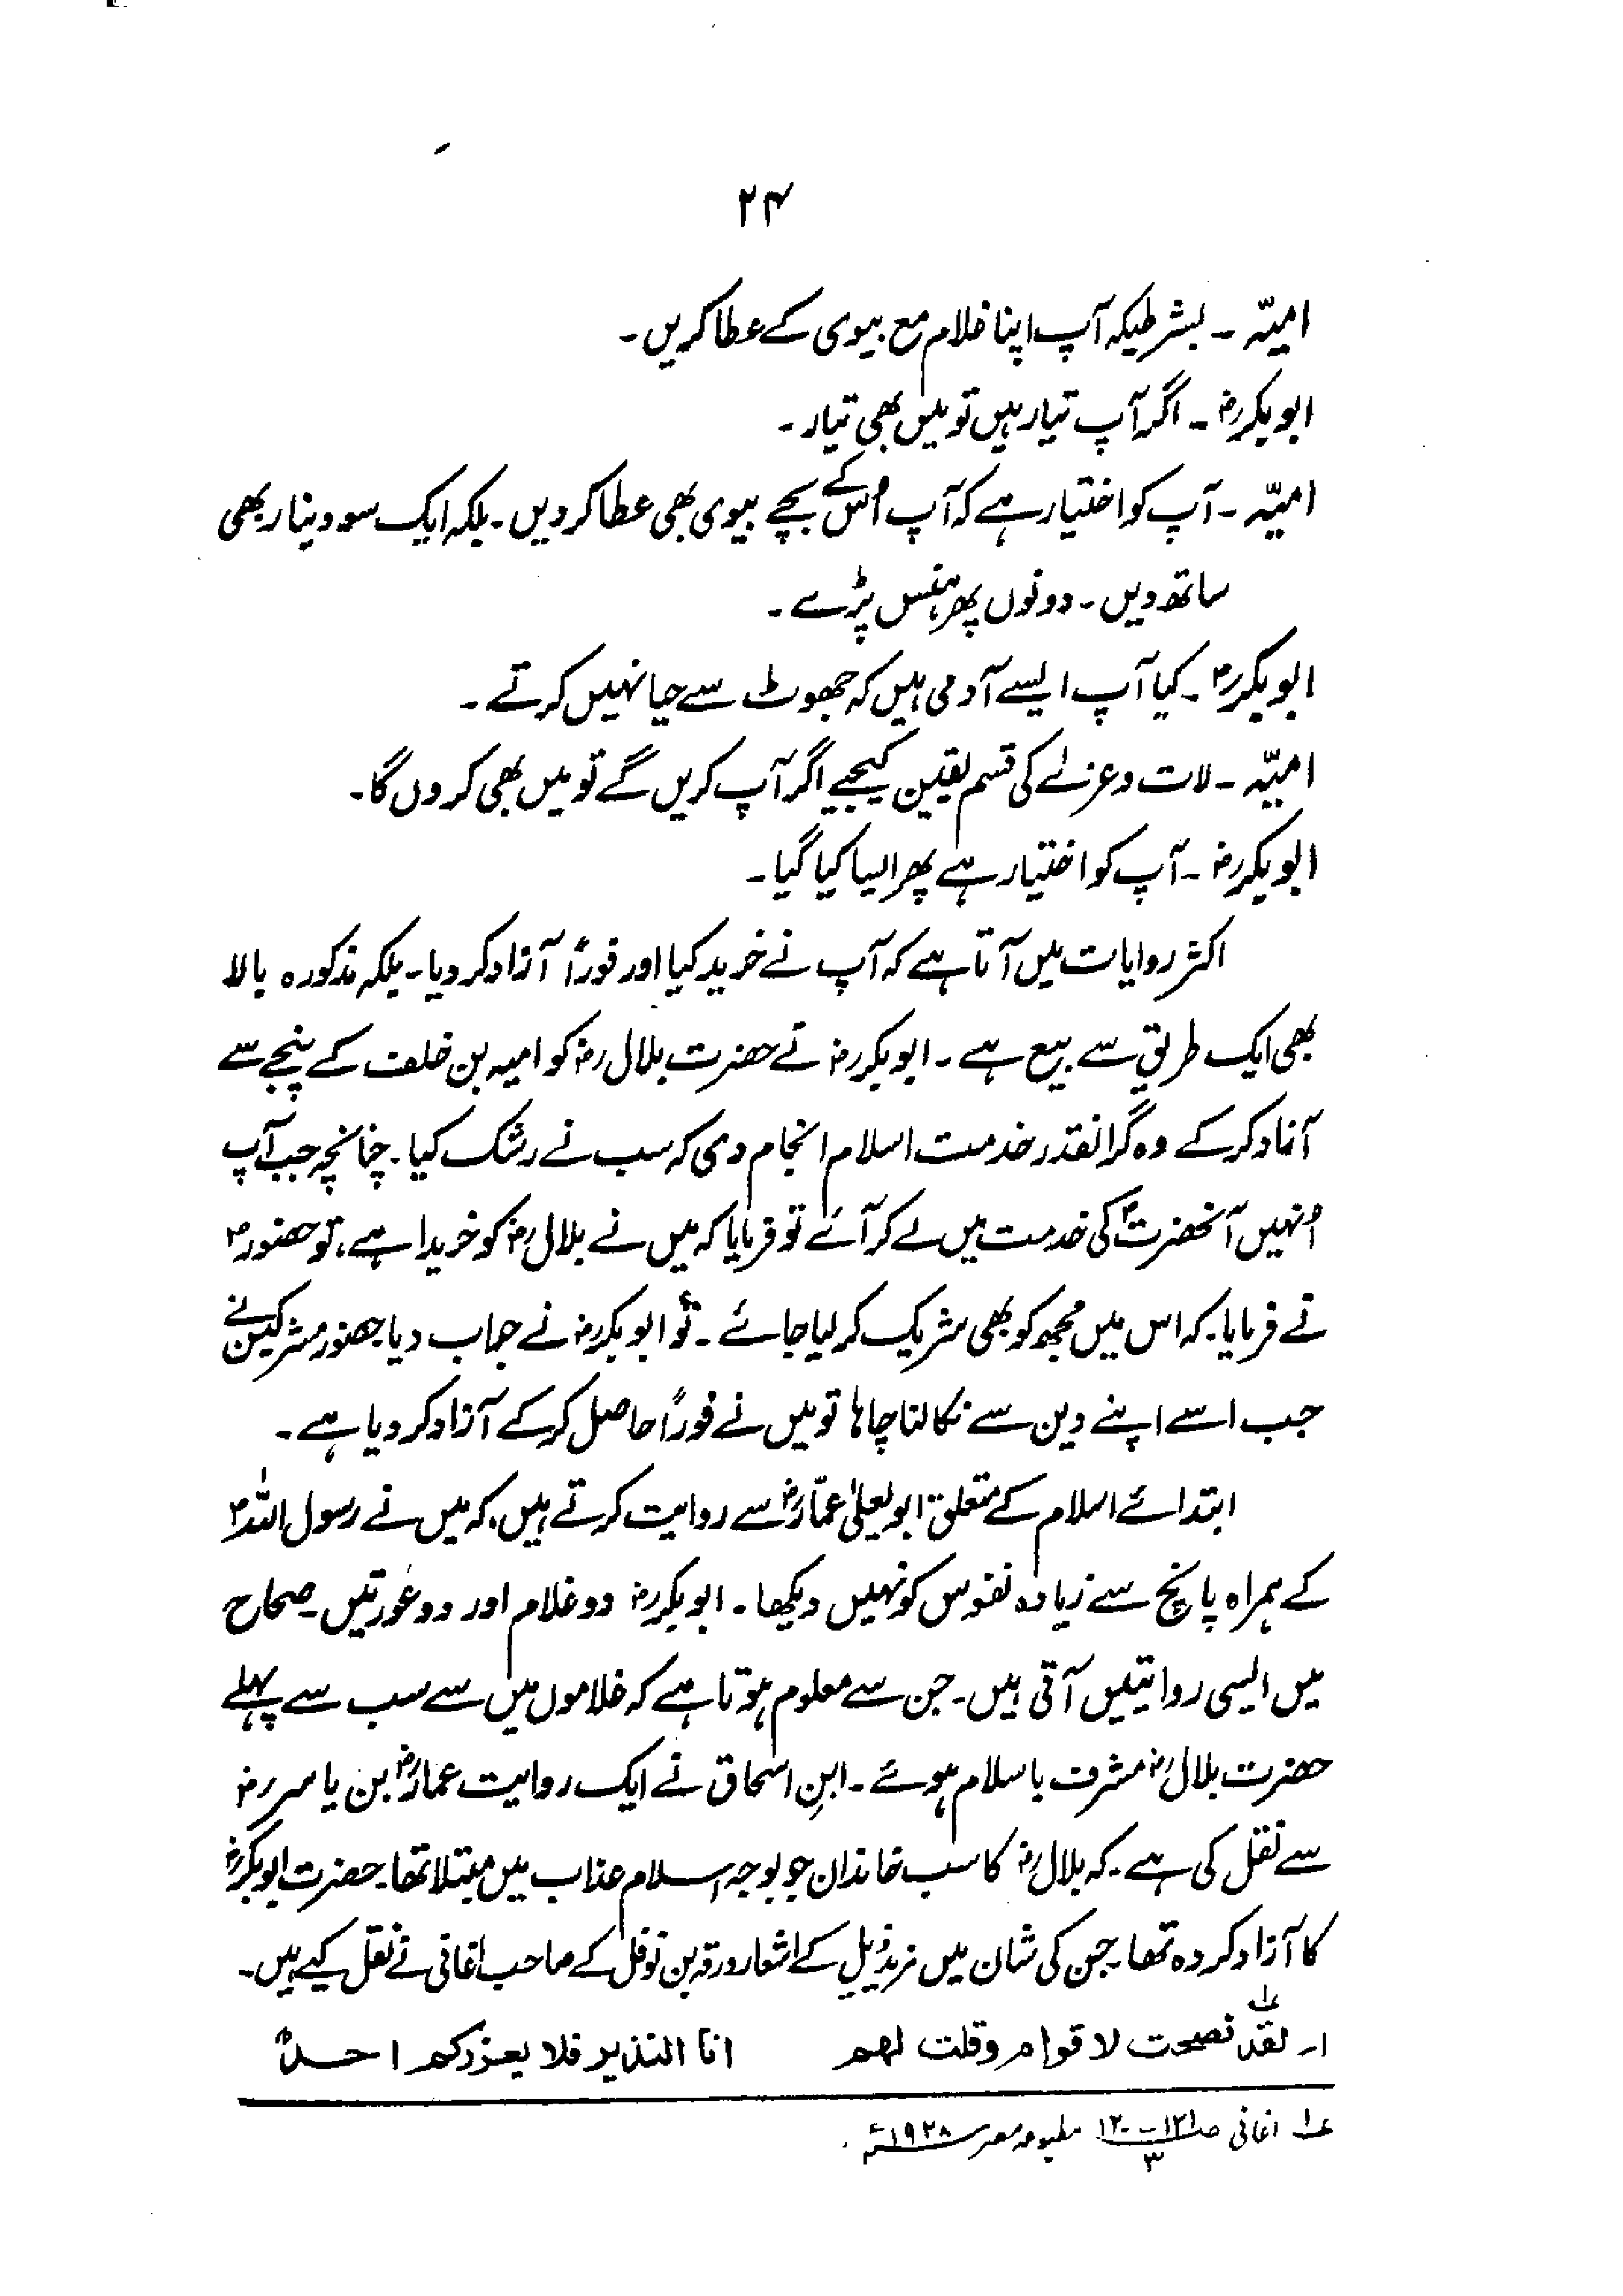 ۲۴
امیّہ ۔ بشرطیکہ آپ اپنا غلام مع بیوی کے عطا کریں۔
ابوبکرؓ ۔ اگر آپ تیار ہیں تو میں بھی تیار۔
امیّہ ۔ آپ کو اختیار ہے کہ آپ اُس کے بچے بیوی بھی عطا کر دیں۔ بلکہ ایک سو دینار بھی
ساتھ دیں۔ دونوں پھر ہنس پڑے۔
ابوبکرؓ ۔ کیا آپ ایسے آدمی ہیں کہ جھوٹ سے حیا نہیں کرتے۔
امیّہ ۔ لات و عزےٰ کی قسم یقین کیجیے اگر آپ کریں گے تو میں بھی کروں گا۔
ابوبکرؓ ۔ آپ کو اختیار ہے پھر ایسا کیا گیا۔
اکثر روایات میں آتا ہے کہ آپ نے خرید کیا اور فوراً آزاد کر دیا۔ بلکہ مذکورہ بالا
بھی ایک طریق سے بیع ہے۔ ابوبکرؓ نے حضرت بلالؓ کو امیہ بن خلف کے پنجے سے
آزاد کر کے وہ گرانقدر خدمت اسلام انجام دی کہ سب نے رشک کیا۔ چنانچہ جب آپ
اُنہیں آنحضرتؐ کی خدمت میں لے کر آئے تو فرمایا کہ میں نے بلالؓ کو خریدا ہے، تو حضورؐ
نے فرمایا۔ کہ اس میں مجھ کو بھی شریک کر لیا جائے۔ تو ابوبکرؓ نے جواب دیا حضور مشرکین نے
جب اسے اپنے دین سے نکالنا چاہا تو میں نے فوراً حاصل کر کے آزاد کر دیا ہے۔
ابتدائے اسلام کے متعلق ابویعلیٰ عمّارؓ سے روایت کرتے ہیں۔ کہ میں نے رسول اللہؐ
کے ہمراہ پانچ سے زیادہ نفوس کو نہیں دیکھا۔ ابوبکرؓ دو غلام اور دو عورتیں۔ صحاح
میں ایسی روایتیں آتی ہیں۔ جن سے معلوم ہوتا ہے کہ غلاموں میں سے سب سے پہلے
حضرت بلالؓ مشرف باسلام ہوئے۔ ابنِ اسحاق نے ایک روایت عمارؓ بن یاسرؓ
سے نقل کی ہے۔ کہ بلالؓ کا سب خاندان جو بوجہ اسلام عذاب میں مبتلا تھا۔ حضرت ابوبکرؓ
کا آزاد کردہ تھا۔ جن کی شان میں ذیل کے اشعار ورقہ بن نوفل کے صاحب اغانی نے نقل کیے ہیں۔
۱۔ لقد نصحت لاقوام وقلت لهم انا النذیر فلا یعزرکم احدٌ
۱ اغانی صـ ۱۲۱ - ۱۲۰ / ۳ مطبوعہ مصر ۱۹۲۸ء